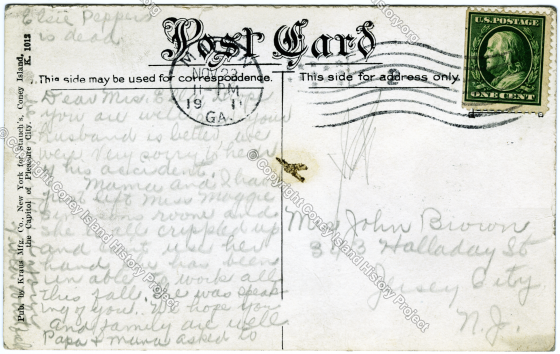 Elsie Peppers
is dead.
Post Card
This side may be used for correspondence.
This side for address only.
U.S. POSTAGE
ONE CENT
NOV 23
11 PM
19 11
GA.
Pub. by Kraus Mfg. Co., New York for Stauch's, Coney Island,
the Capitol of Pleasure City.
K. 1013
Dear Miss
you are well &
husband is better, we
were very sorry to hear
of his accident.
Mama and I have
just left Miss Maggie
room and
she is all crippled up
and can't use her
hand she has been
unable to work all
this fall. She was speak-
ing of you. We hope you
and family are well
Papa & mama asked to
Mrs John Brown
Halladay St
Jersey City
N.J.
Coney Island History Project